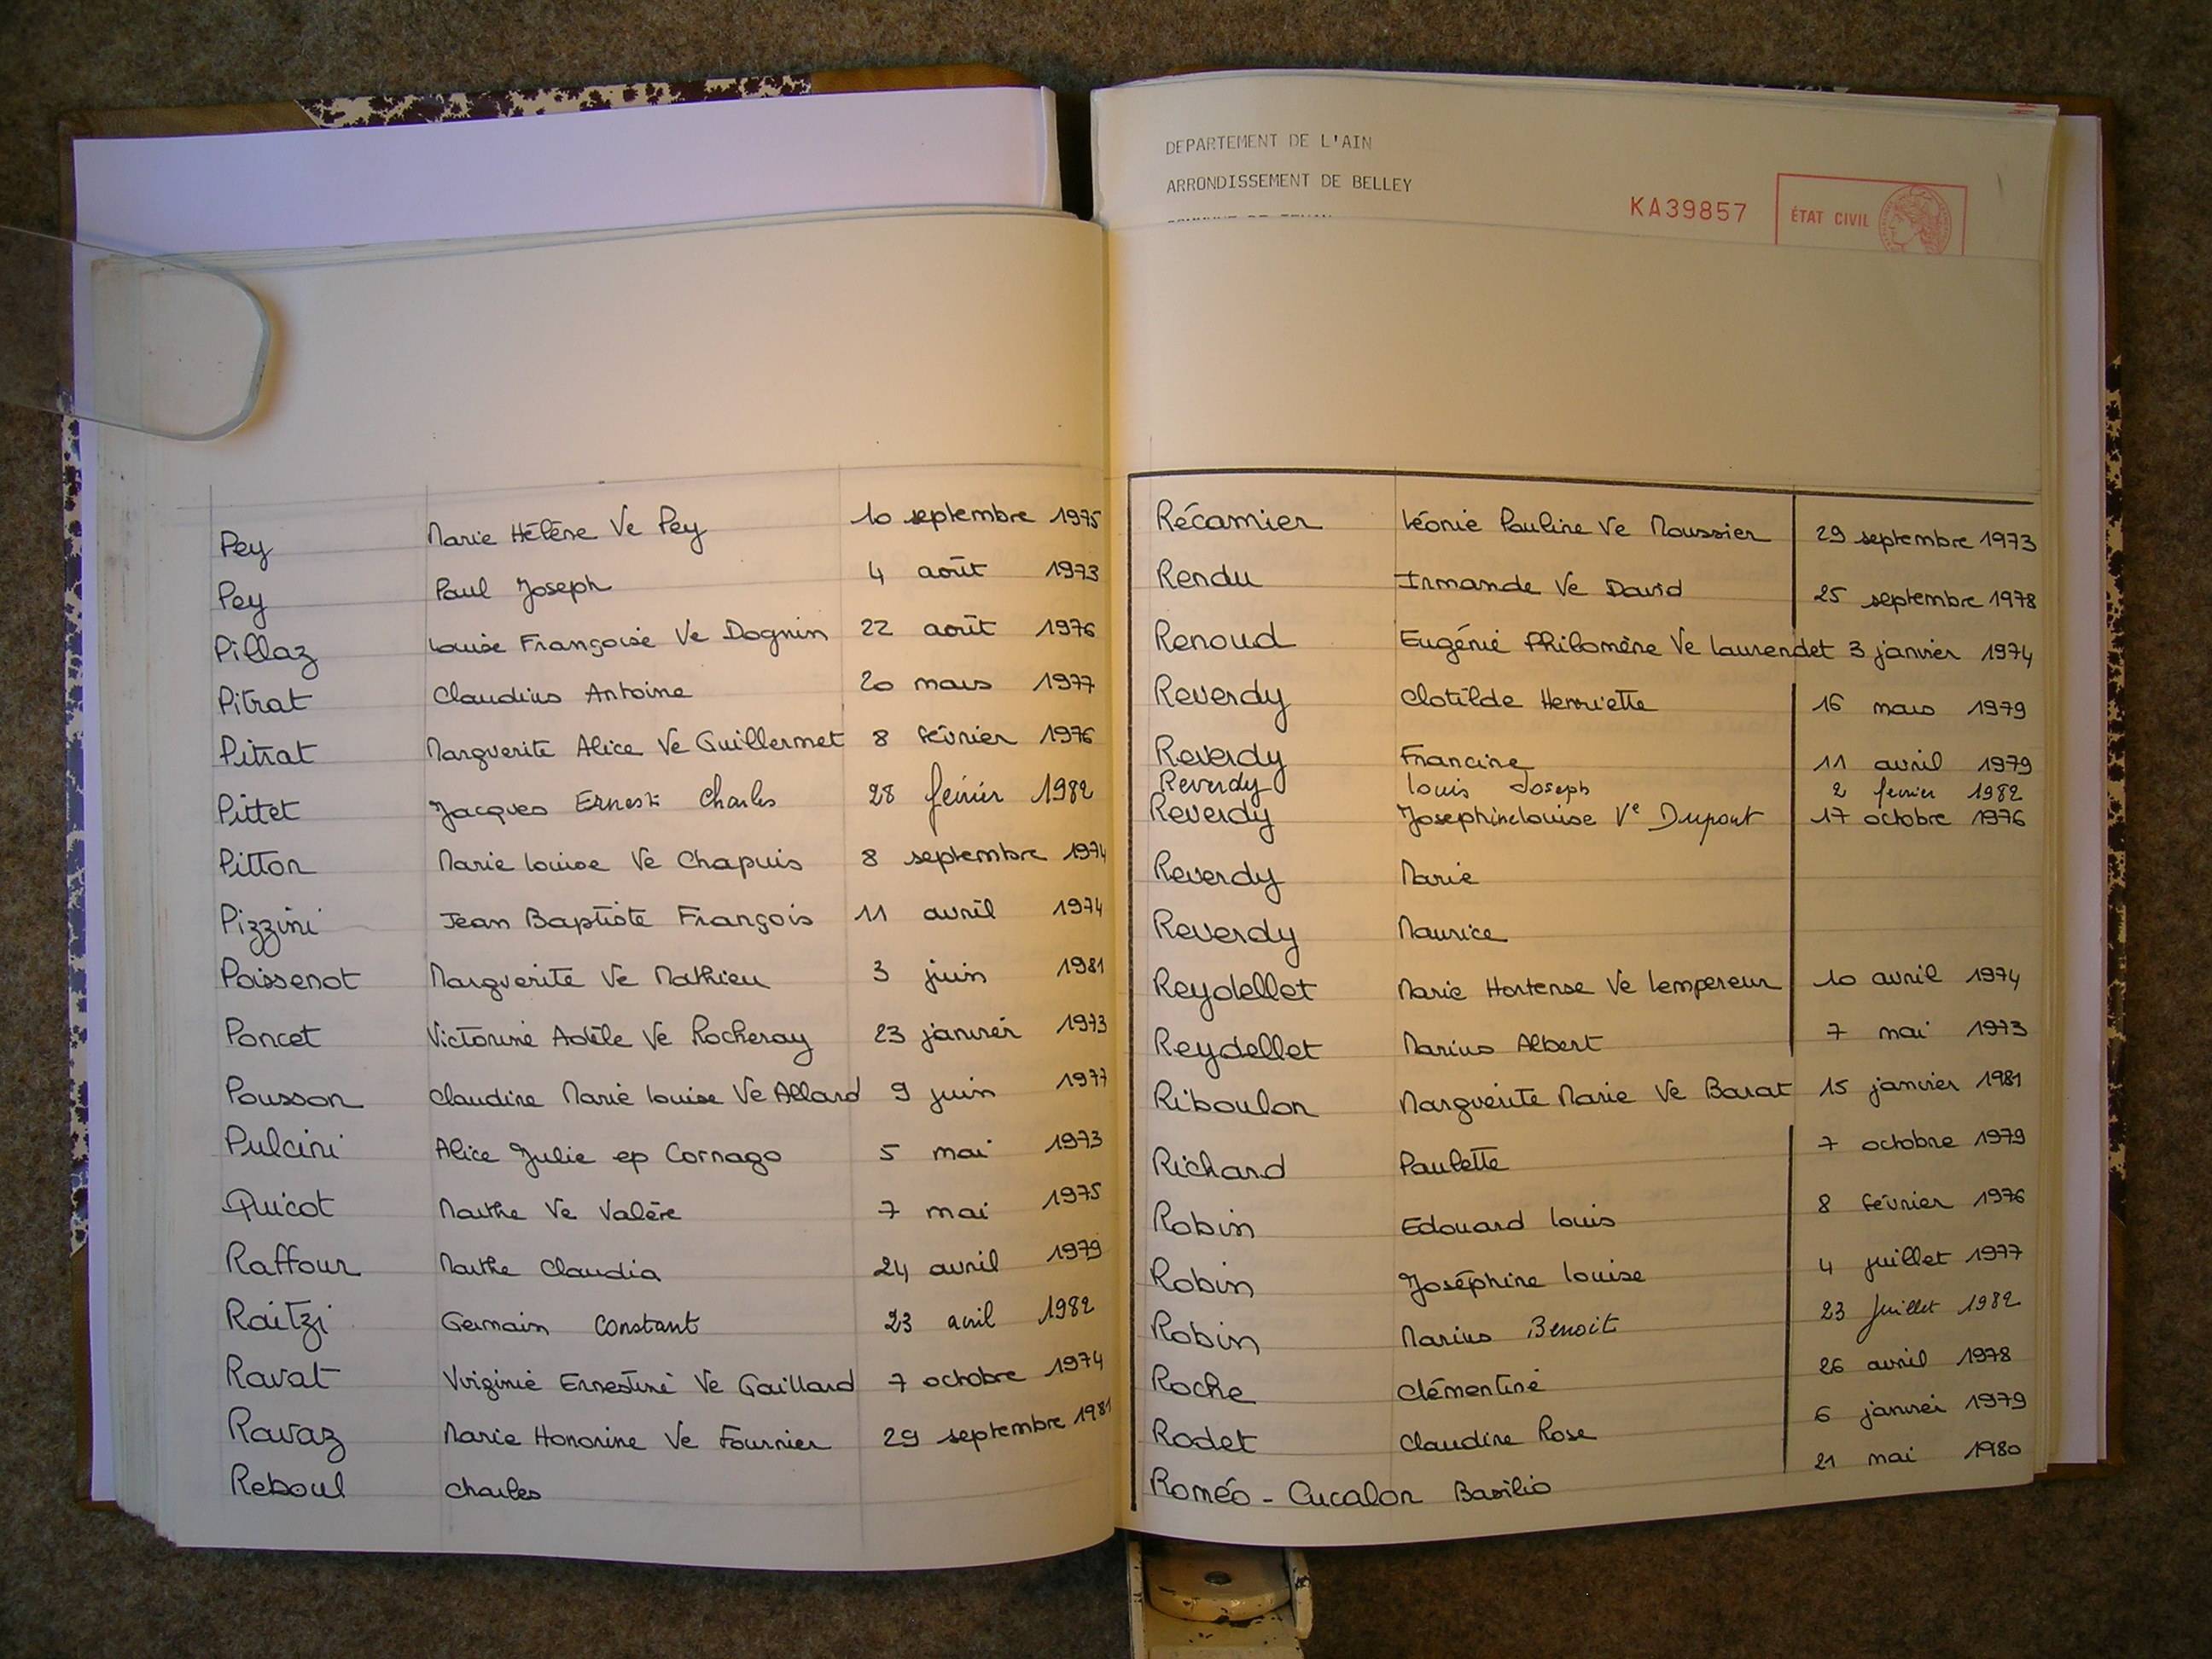 DEPARTEMENT DE L'AIN
ARRONDISSEMENT DE BELLEY
KA39857 ÉTAT CIVIL
Pey Marie Hélène Ve Pey 10 septembre 1975
Pey Paul Joseph 4 août 1973
Pillaz Louise Françoise Ve Dognin 22 août 1976
Pitrat Claudius Antoine 20 mars 1977
Pitrat Marguerite Alice Ve Guillermet 8 février 1976
Pittet Jacques Ernest Charles 28 février 1982
Pitton Marie Louise Ve Chapuis 8 septembre 1974
Pizzini Jean Baptiste François 11 avril 1974
Poissenot Marguerite Ve Mathieu 3 juin 1981
Poncet Victorine Adèle Ve Rocheray 23 janvier 1973
Pousson Claudine Marie Louise Ve Allard 9 juin 1977
Pulcini Alice Julie ep Cornago 5 mai 1973
Quicot Marthe Ve Valère 7 mai 1975
Raffour Marthe Claudia 24 avril 1979
Raitzi Germain Constant 23 avril 1982
Ravat Virginie Ernestine Ve Gaillard 7 octobre 1974
Ravaz Marie Honorine Ve Fournier 29 septembre 1981
Reboul Charles
Récamier Léonie Pauline Ve Moussier 29 septembre 1973
Rendu Irmande Ve David 25 septembre 1978
Renoud Eugénie Philomène Ve Laurendet 3 janvier 1974
Reverdy Clotilde Henriette 16 mars 1979
Reverdy Francine 11 avril 1979
Reverdy Louis Joseph 2 fevrier 1982
Reverdy Josephine Louise Ve Dupont 17 octobre 1976
Reverdy Marie
Reverdy Maurice
Reydellet Marie Hortense Ve Lempereur 10 avril 1974
Reydellet Marius Albert 7 mai 1973
Riboulon Marguerite Marie Ve Barat 15 janvier 1981
Richard Paulette 7 octobre 1979
Robin Edouard Louis 8 février 1976
Robin Joséphine Louise 4 juillet 1977
Robin Marius Benoit 23 Juillet 1982
Roche Clémentine 26 avril 1978
Rodet Claudine Rose 6 janvier 1979
Roméo - Cucalon Basilio 21 mai 1980